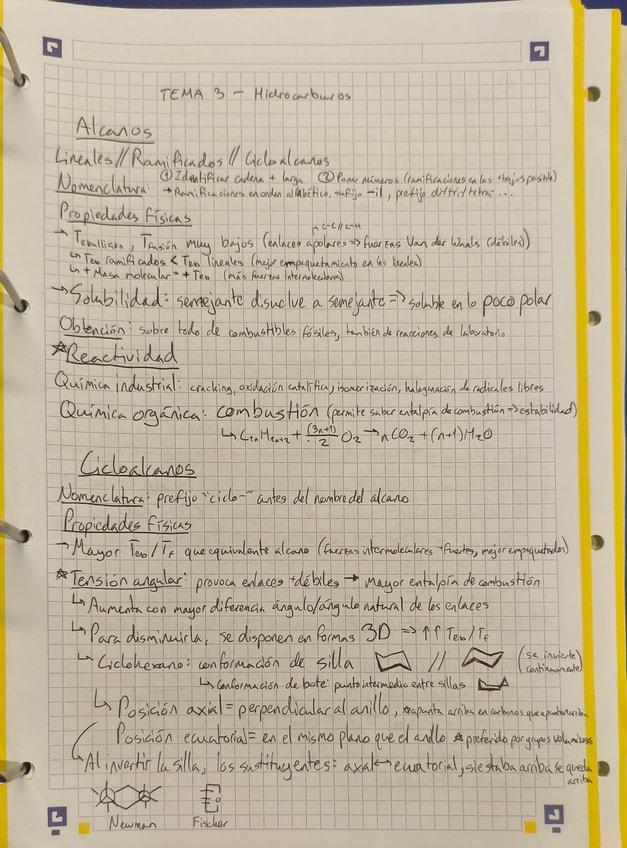 TEMA 3 - Hidrocarburos
Alcanos
Lineales // Ramificados // Cicloalcanos
Nomenclatura: ① Identificar cadena + larga ② Poner números (ramificaciones en los + bajos posible)
→ Ramificaciones en orden alfabético, sufijo -il, prefijo di/tri/tetra-...
Propiedades físicas
C-C // C-H
→ Tebullición, Tfusión muy bajos (enlaces apolares => fuerzas Van der Waals (débiles))
↳ Teb ramificados < Teb lineales (mejor empaquetamiento en los lineales)
↳ + Masa molecular = + Teb (más fuerzas intermoleculares)
→ Solubilidad: semejante disuelve a semejante => soluble en lo poco polar
Obtención: sobre todo de combustibles fósiles, también de reacciones de laboratorio
*Reactividad
Química industrial: cracking, oxidación catalítica, isomerización, halogenación de radicales libres
Química orgánica: combustión (permite saber entalpía de combustión => estabilidad)
↳ CnH2n+2 + (3n+1)/2 O2 → nCO2 + (n+1)H2O
Cicloalcanos
Nomenclatura: prefijo "ciclo-" antes del nombre del alcano
Propiedades físicas
→ Mayor Teb/Tf que equivalente alcano (fuerzas intermoleculares + fuertes, mejor empaquetados)
*Tensión angular: provoca enlaces + débiles → Mayor entalpía de combustión
↳ Aumenta con mayor diferencia ángulo/ángulo natural de los enlaces
↳ Para disminuirla, se disponen en formas 3D => ↑↑ Teb/Tf
↳ Ciclohexano: conformación de silla // (se invierte continuamente)
↳ Conformación de bote: punto intermedio entre sillas
↳ Posición axial = perpendicular al anillo, * apunta arriba en carbonos que apuntan arriba
Posición ecuatorial = en el mismo plano que el anillo * preferido por grupos voluminosos
↳ Al invertir la silla, los sustituyentes: axial ↔ ecuatorial, si estaba arriba se queda arriba
Newman Fischer